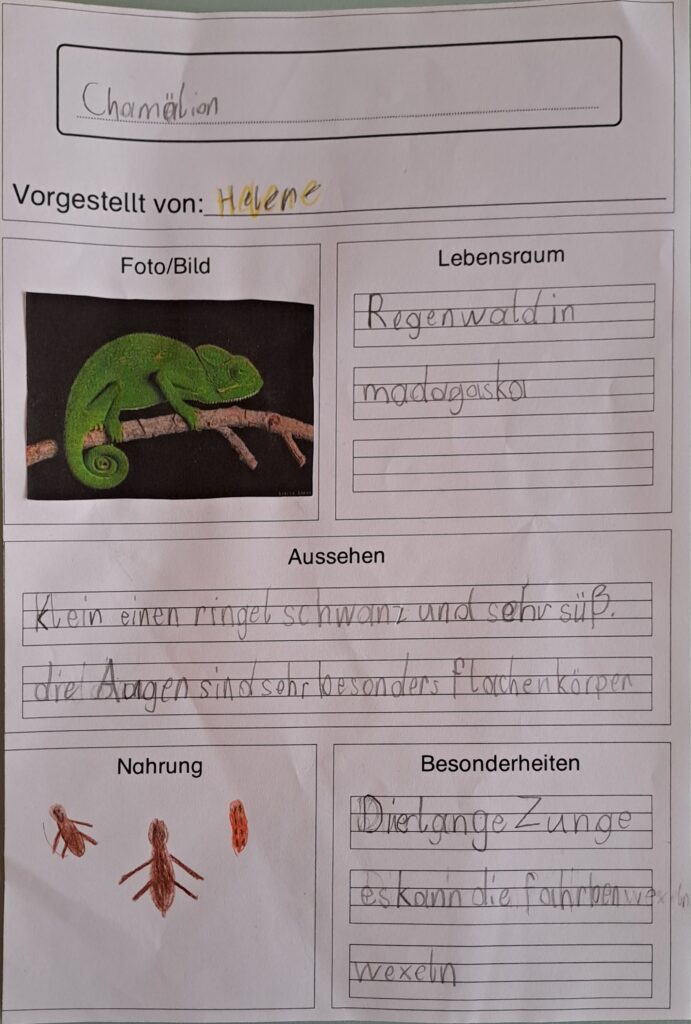 Chamälion
Vorgestellt von: Helene
Foto/Bild
Lebensraum
Regenwald in
madagaska
Aussehen
Klein einen ringel schwanz und sehr süß.
die Augen sind sehr besonders flachen körper
Nahrung
Besonderheiten
Die lange Zunge
es kann die fahrben wexeln
wexeln